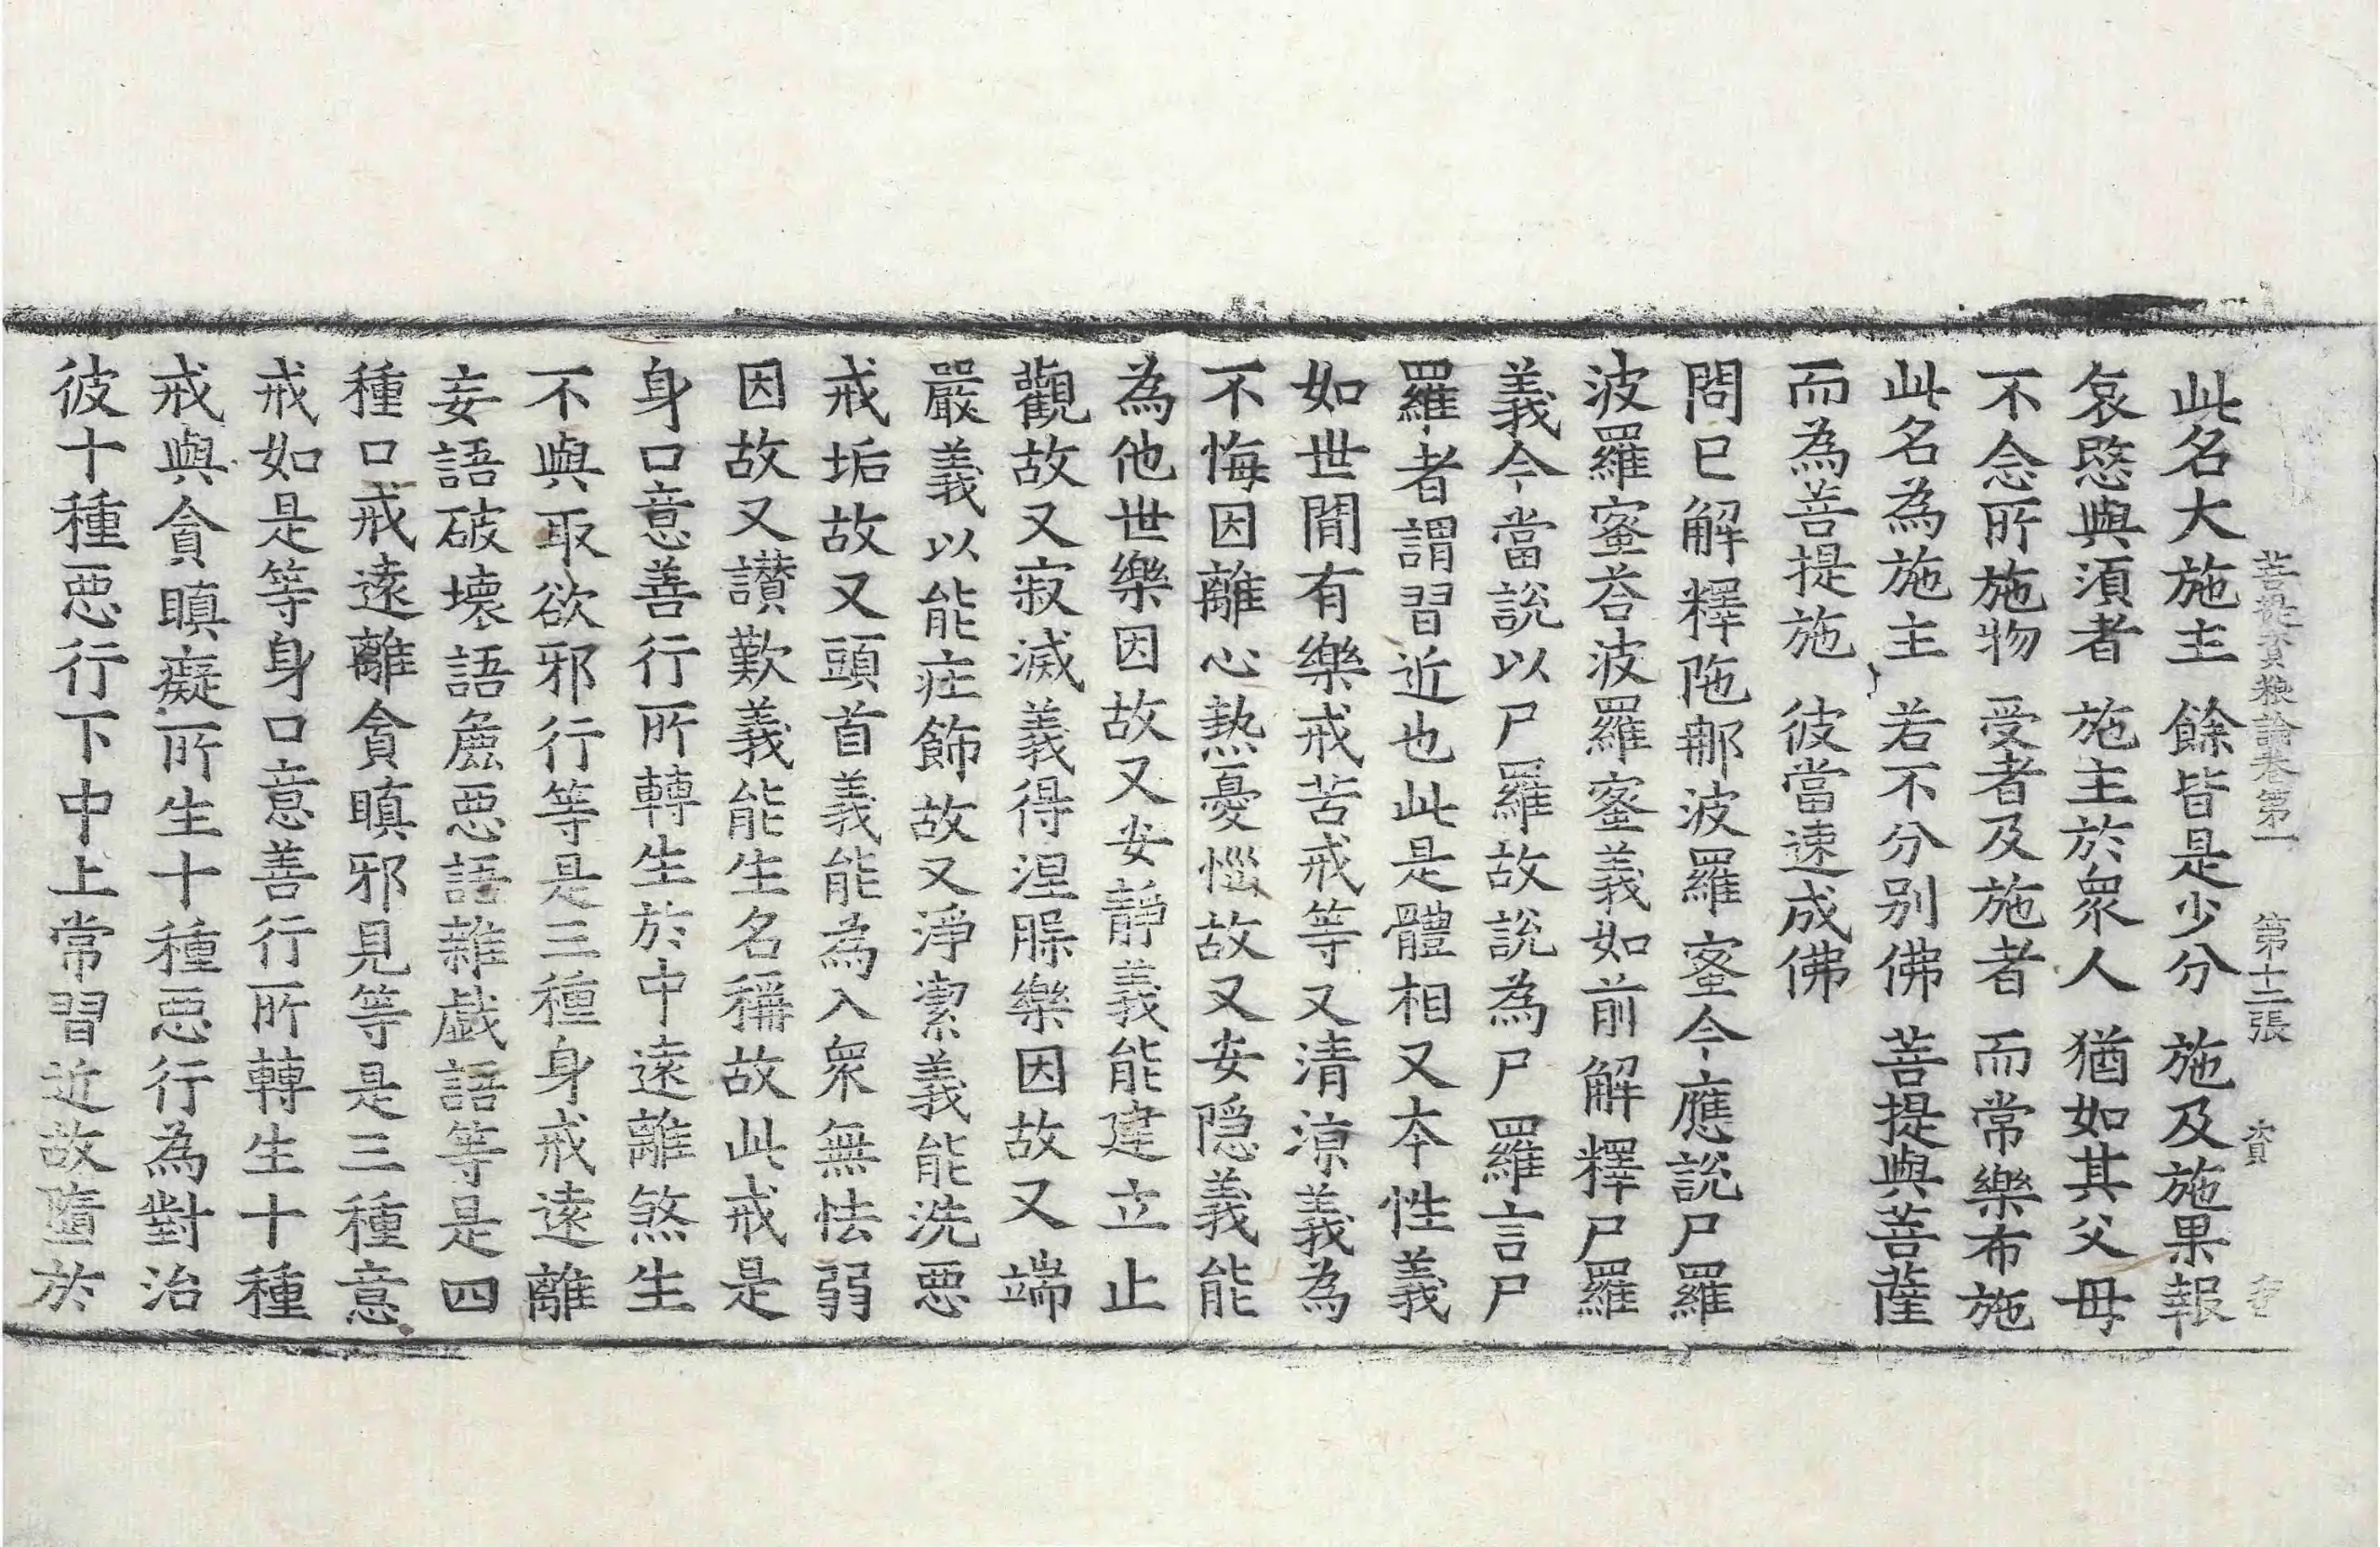 菩提資粮論卷第一 第十二張 資
此名大施主 餘皆是少分 施及施果報
哀愍與須者 施主於衆人 猶如其父母
不念所施物 受者及施者 而常樂布施
此名為施主 若不分別佛 菩提與菩薩
而為菩提施 彼當速成佛
問已解釋陁那波羅蜜今應說尸羅
波羅蜜荅波羅蜜義如前解釋尸羅
義今當說以尸羅故說為尸羅言尸
羅者謂習近也此是體相又本性義
如世間有樂戒苦戒等又清涼義為
不悔因離心熱憂惱故又安隱義能
為他世樂因故又安靜義能建立止
觀故又寂滅義得涅槃樂因故又端
嚴義以能莊飾故又淨潔義能洗惡
戒垢故又頭首義能為入衆無怯弱
因故又讃歎義能生名稱故此戒是
身口意善行所轉生於中遠離煞生
不與取欲邪行等是三種身戒遠離
妄語破壞語麁惡語雜戯語等是四
種口戒遠離貪瞋邪見等是三種意
戒如是等身口意善行所轉生十種
戒與貪瞋癡所生十種惡行為對治
彼十種惡行下中上常習近故墮於